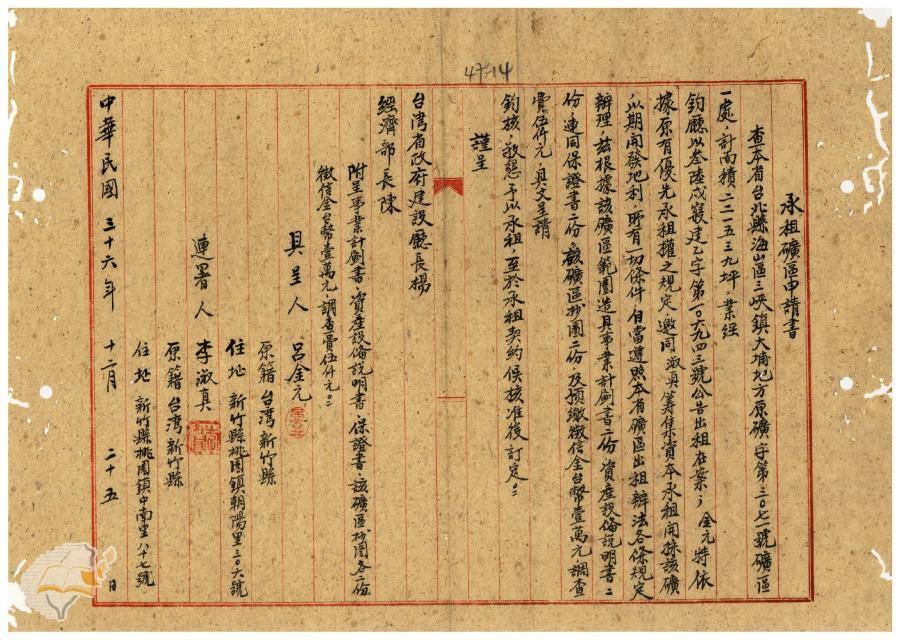 47-14
承租礦區申請書
查本省台北縣海山區三峽鎮大埔地方原礦字第三〇七一號礦區
一處,計面積二二一五三九坪,業經
鈞廳以叁陸戌寢建乙字第一〇六九四三號公告出租在案;金元特依
據原有優先承租權之規定,邀同淑真籌集資本承租開採該礦
以期開發地利,所有一切條件自當遵照本省礦區出租辦法各條規定
辦理,茲根據該礦區範圍造具事業計劃書二份資產設備說明書二
份、連同保證書二份、該礦區抄圖二份、及預繳徵信金台幣壹萬元、調查
費伍仟元,具文呈請
鈞核,敬懇予以承租,至於承租契約俟核准後訂定。
謹呈
台灣省政府建設廳長楊
經濟部長陳
附呈事業計劃書、資產設備說明書、保證書、該礦區抄圖各二份
徵信金台幣壹萬元、調查費伍仟元。
具呈人 呂金元
原籍 台灣新竹縣
住址 新竹縣桃園鎮朝陽里三〇六號
連署人 李淑真
原籍 台灣新竹縣
住址 新竹縣桃園鎮中南里八十七號
中華民國 三十六年 十二月 二十五 日